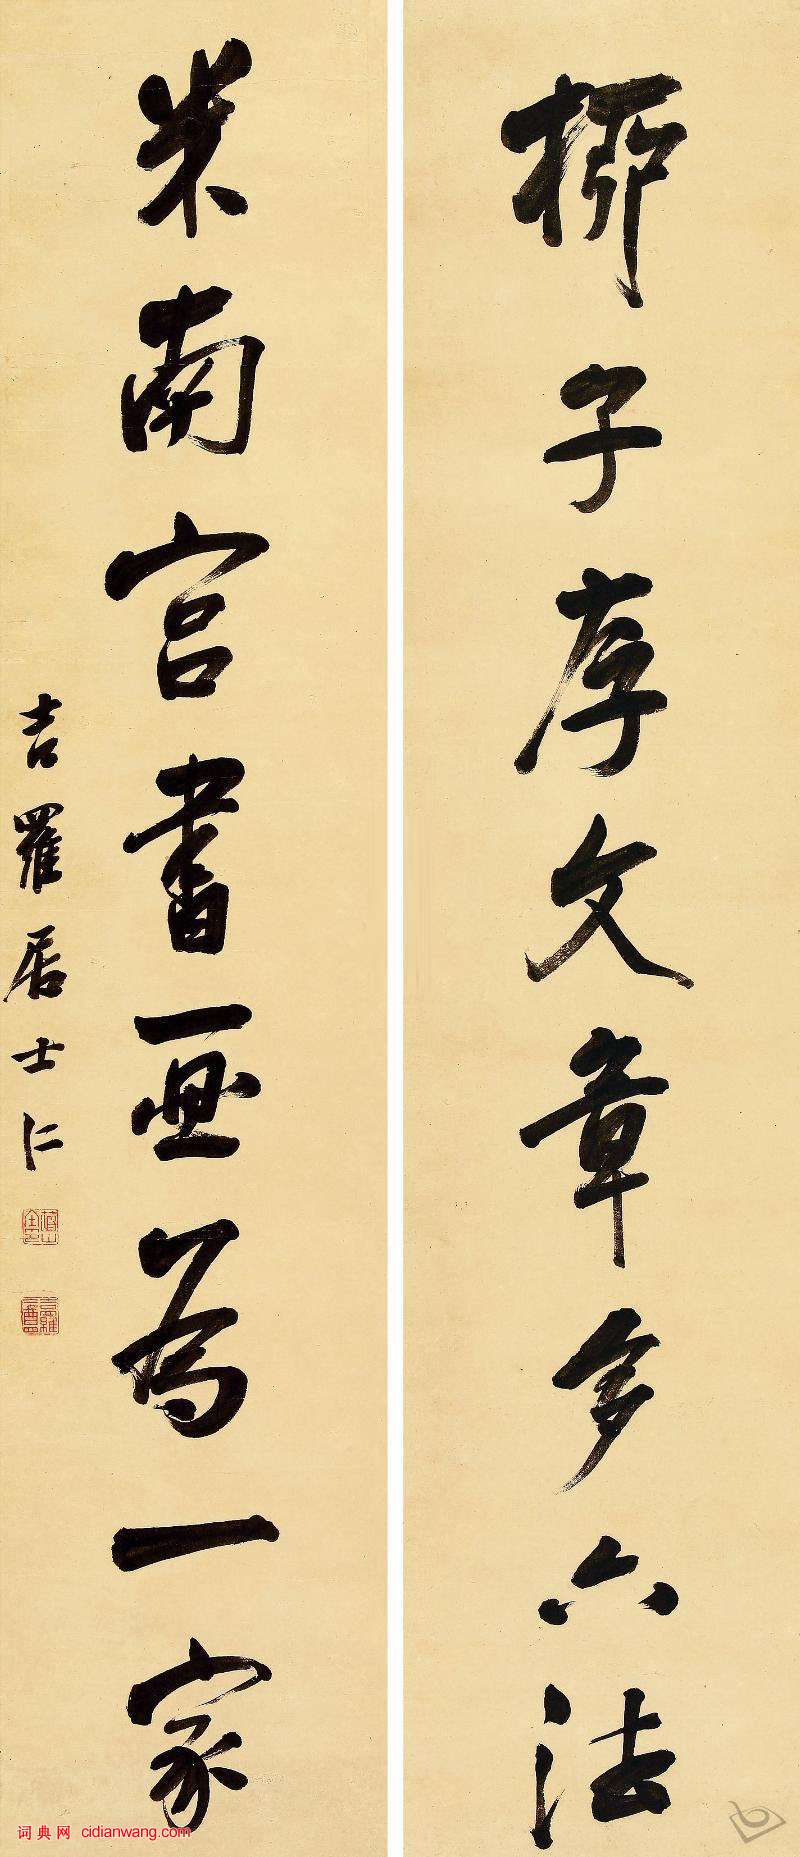 柳子厚文章多六法
米南宫書画為一家
吉羅居士仁
词典网 cidianwang.com